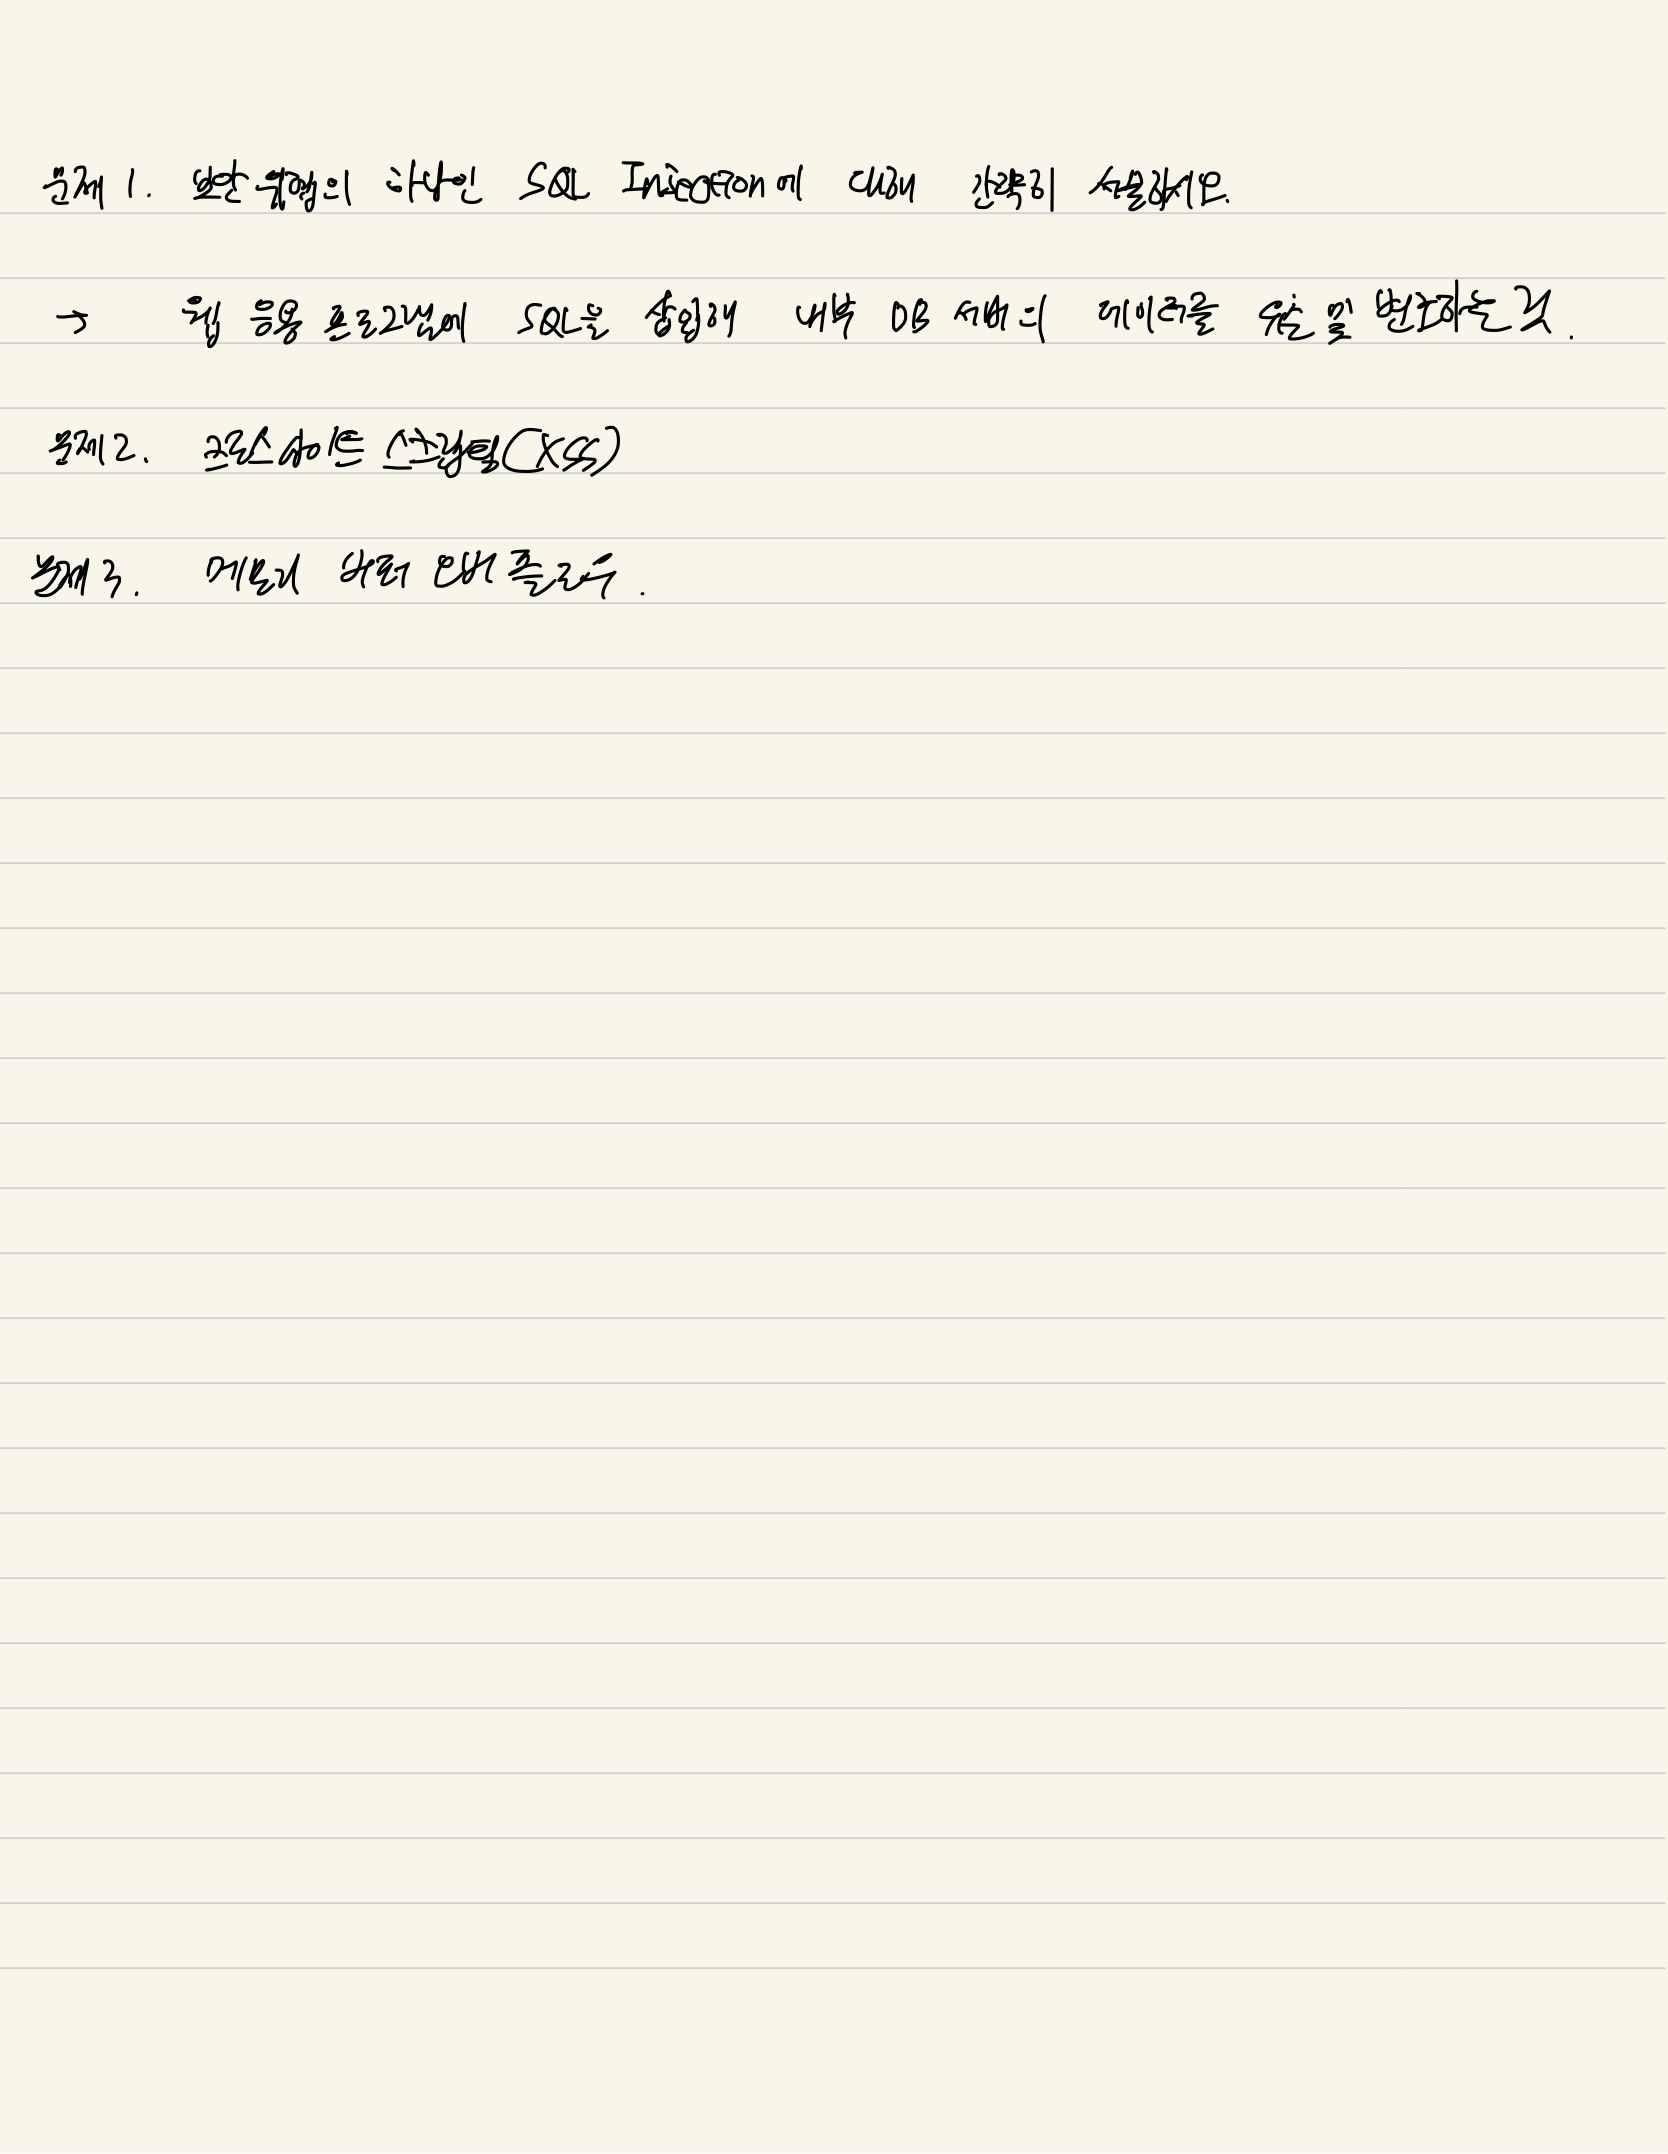 문제 1. 보안 위협의 하나인 SQL Injection에 대해 간략히 서술하시오.
→ 웹 응용 프로그램에 SQL을 삽입해 내부 DB 서버의 데이터를 유출 및 변조하는 것.
문제 2. 크로스 사이트 스크립팅(XSS)
문제 3. 메모리 버퍼 오버 플로우.